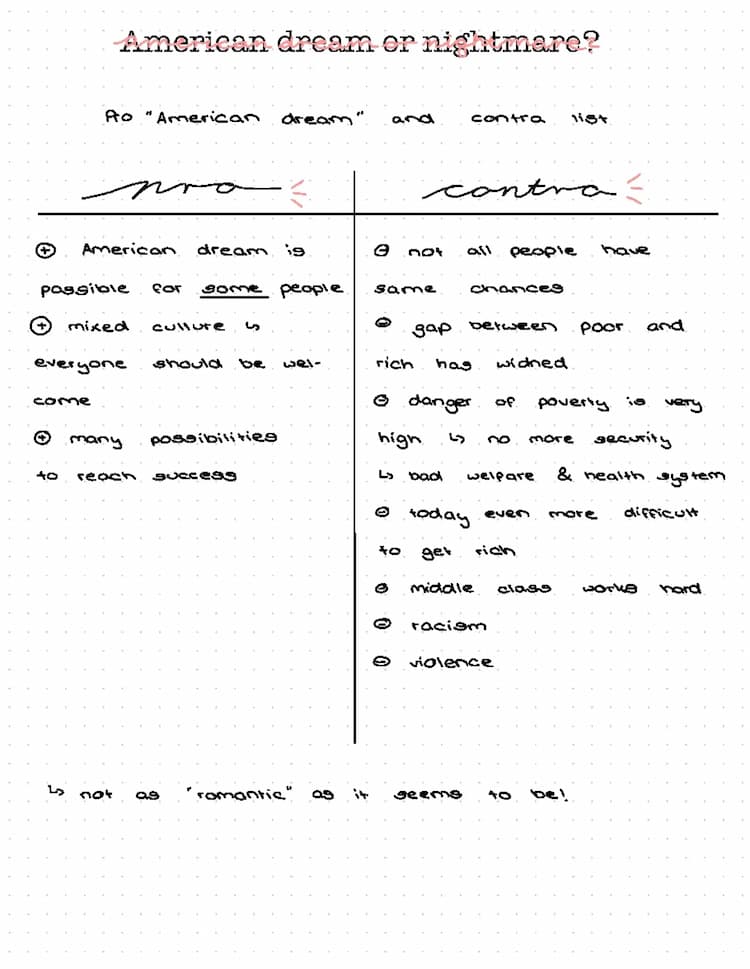 American dream or nightmare?
Pro "American dream" and contra list
pro
⊕ American dream is
possible for some people
⊕ mixed culture ↳
everyone should be wel-
come
⊕ many possibilities
to reach success
contra
⊖ not all people have
same chances
⊖ gap between poor and
rich has widned
⊖ danger of poverty is very
high ↳ no more security
↳ bad welfare & health system
⊖ today even more difficult
to get rich
⊖ middle class works hard
⊖ racism
⊖ violence
↳ not as "romantic" as it seems to be!